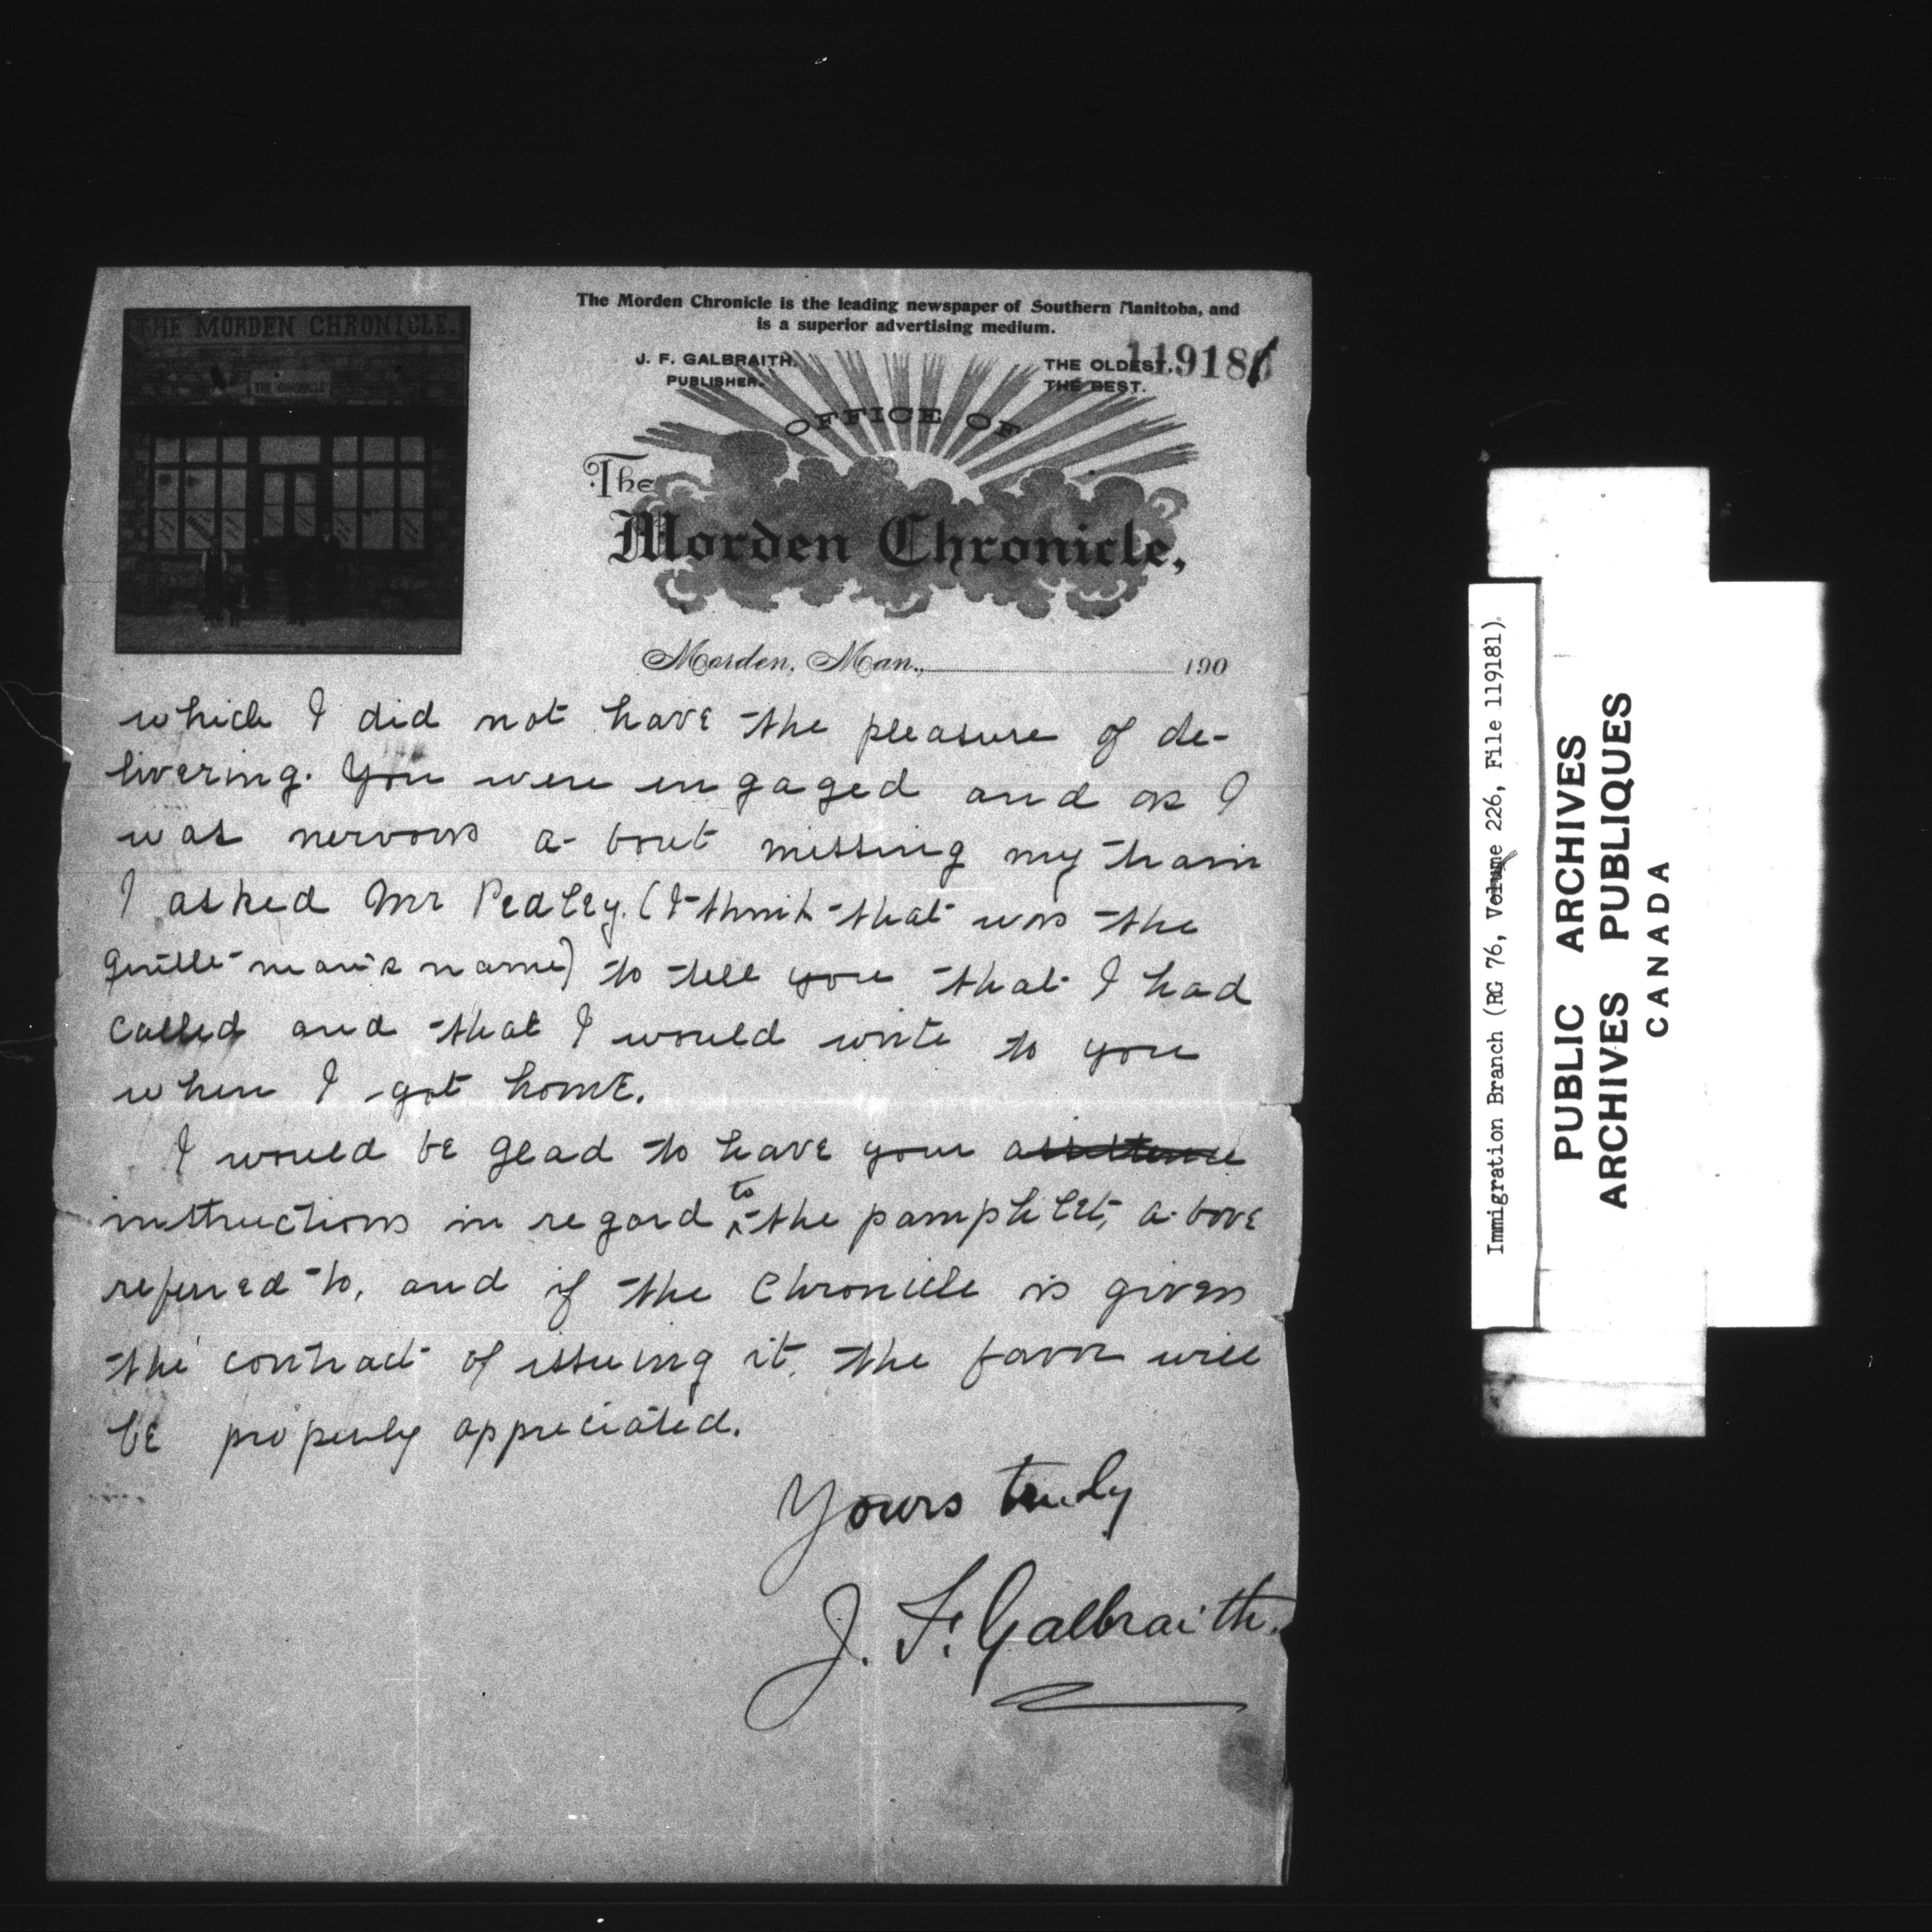 The Morden Chronicle is the leading newspaper of Southern Manitoba, and
is a superior advertising medium.
THE MORDEN CHRONICLE.
THE CHRONICLE
J. F. GALBRAITH,
PUBLISHER.
THE OLDEST.
THE BEST.
119181
OFFICE OF
The
Morden Chronicle,
Morden, Man., 190
which I did not have the pleasure of de-
livering. You were engaged and as I
was nervous a-bout missing my train
I asked Mr Pedley. (I think that was the
gentle-man's name) to tell you that I had
called and that I would write to you
when I got home.
I would be glad to have your assistance
instructions in regard to the pamphlet, a-bove
referred to, and if the Chronicle is given
the contract of issuing it, the favor will
be properly appreciated.
Yours truly
J. F. Galbraith.
Immigration Branch (RG 76, Volume 226, File 119181).
PUBLIC ARCHIVES
ARCHIVES PUBLIQUES
CANADA